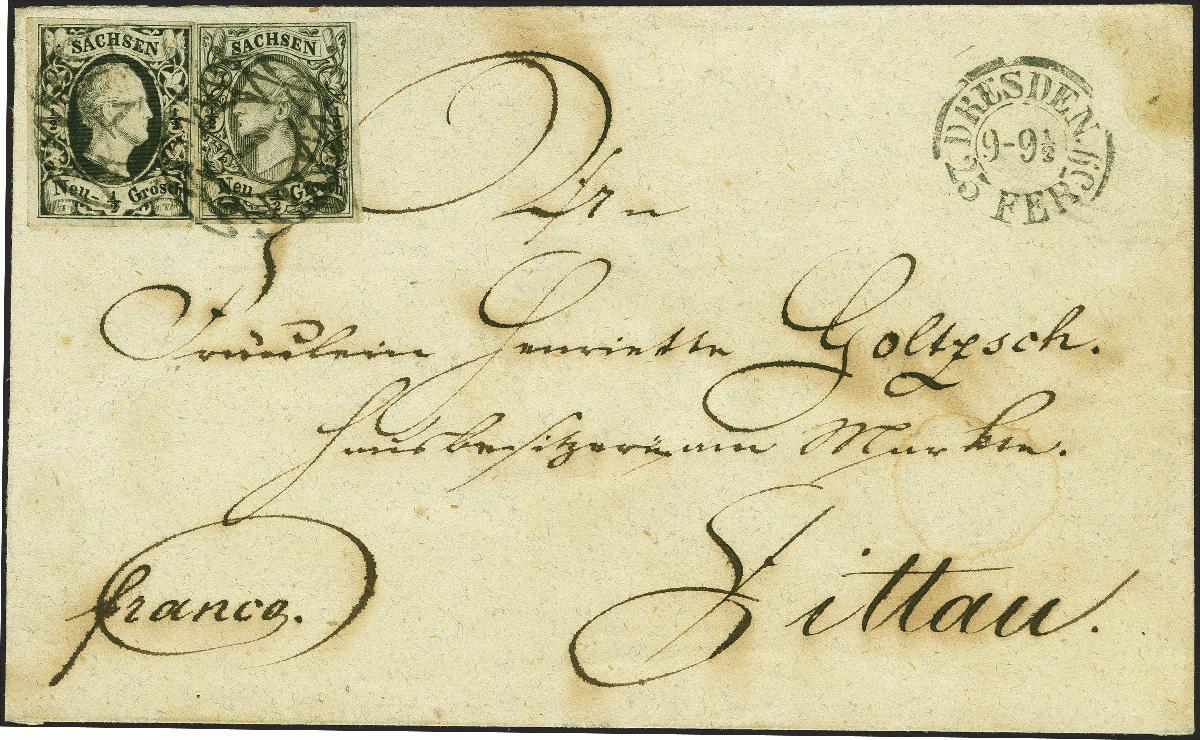 SACHSEN
Neu- ½ Grosch
SACHSEN
Neu ½ Grosch
DRESDEN
9-9½
25 FEB
An
Fräulein Henriette Goltzsch.
Hausbesitzerin am Markte.
franco.
Zittau.